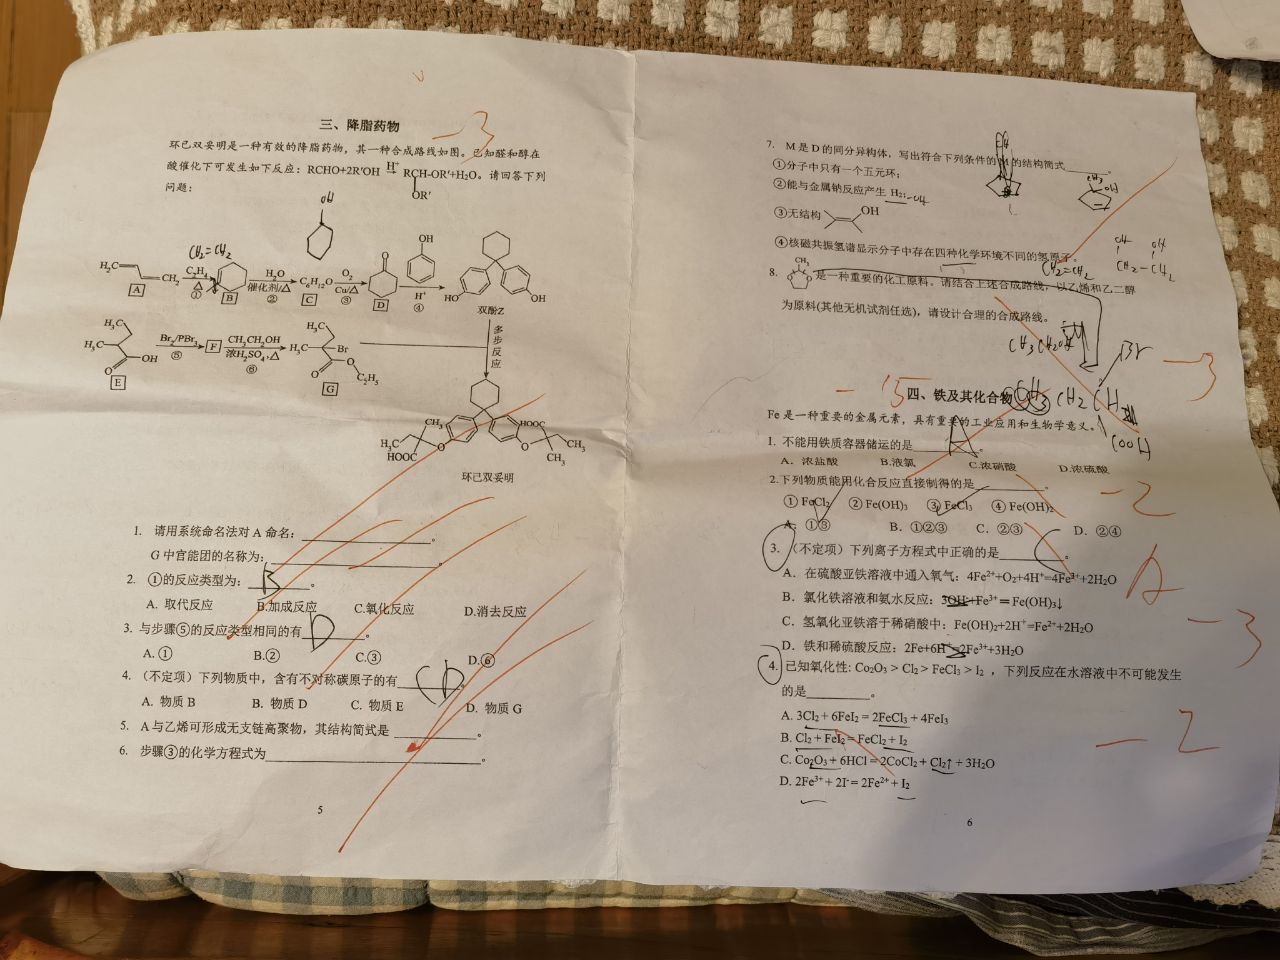 三、降脂药物
-3
环已双妥明是一种有效的降脂药物，其一种合成路线如图。已知醛和醇在
酸催化下可发生如下反应：RCHO+2R'OH H⁺→ RCH-OR'+H₂O。请回答下列
OR'
问题：
OH
CH₂=CH₂
H₂C CH₂ A
C₂H₄ △ ①
B
H₂O 催化剂/△ ②
C₆H₁₂O C
O₂ Cu/△ ③
O D
OH H⁺ ④
HO OH
双酚Z
多步反应
H₃C H₃C OH O E
Br₂/PBr₃ ⑤
F
CH₃CH₂OH 浓H₂SO₄,△ ⑥
H₃C H₃C Br O O C₂H₅ G
H₃C CH₃ HOOC O HOOC CH₃ O CH₃
环已双妥明
1. 请用系统命名法对 A 命名：________。
G 中官能团的名称为：________。
2. ①的反应类型为：B。
A. 取代反应 B.加成反应 C.氧化反应 D.消去反应
3. 与步骤⑤的反应类型相同的有D。
A. ① B.② C.③ D.⑥
4. （不定项）下列物质中，含有不对称碳原子的有CD。
A. 物质 B B. 物质 D C. 物质 E D. 物质 G
5. A 与乙烯可形成无支链高聚物，其结构简式是 ________。
6. 步骤③的化学方程式为________。
5
7. M 是 D 的同分异构体，写出符合下列条件的 M 的结构简式________。
①分子中只有一个五元环；
②能与金属钠反应产生 H₂; -OH
CH₃
OH
③无结构 OH
④核磁共振氢谱显示分子中存在四种化学环境不同的氢原子。
OH OH
CH₂-CH₂
CH₂=CH₂
8. CH₃ O O 是一种重要的化工原料。请结合上述合成路线，以乙烯和乙二醇
为原料(其他无机试剂任选)，请设计合理的合成路线。
CH₃CH₂OH
Br
-3
-15
四、铁及其化合物
CH₃ CH₂ CH
COOH
Fe 是一种重要的金属元素，具有重要的工业应用和生物学意义。
1. 不能用铁质容器储运的是A。
A. 浓盐酸 B.液氯 C.浓硝酸 D.浓硫酸
2.下列物质能用化合反应直接制得的是________。
-2
① FeCl₂ ② Fe(OH)₃ ③ FeCl₃ ④ Fe(OH)₂
A. ①③ B. ①②③ C. ②③ D. ②④
3. （不定项）下列离子方程式中正确的是C。
A. 在硫酸亚铁溶液中通入氧气：4Fe²⁺+O₂+4H⁺=4Fe³⁺+2H₂O
A
B. 氯化铁溶液和氨水反应：3OH⁻+Fe³⁺＝Fe(OH)₃↓
C. 氢氧化亚铁溶于稀硝酸中：Fe(OH)₂+2H⁺=Fe²⁺+2H₂O
-3
D. 铁和稀硫酸反应：2Fe+6H⁺=2Fe³⁺+3H₂O
4. 已知氧化性: Co₂O₃ > Cl₂ > FeCl₃ > I₂ ，下列反应在水溶液中不可能发生
的是________。
A. 3Cl₂ + 6FeI₂ = 2FeCl₃ + 4FeI₃
B. Cl₂ + FeI₂ = FeCl₂ + I₂
-2
C. Co₂O₃ + 6HCl = 2CoCl₂ + Cl₂↑ + 3H₂O
D. 2Fe³⁺ + 2I⁻ = 2Fe²⁺ + I₂
6